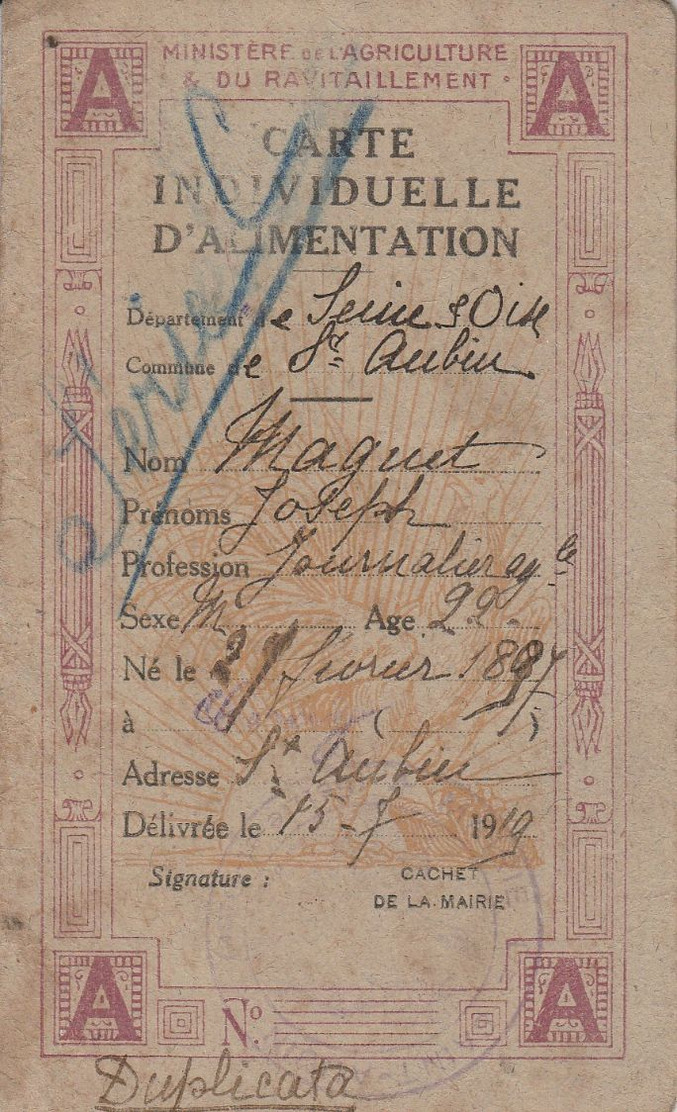 MINISTÈRE DE L'AGRICULTURE
& DU RAVITAILLEMENT
A A
CARTE
INDIVIDUELLE
D'ALIMENTATION
Département de Seine & Oise
Commune de St Aubin
Nom Maguet
Prénoms Joseph
Profession Journalier agle
Sexe M Age 22
Né le février 1897
à ( )
Adresse St Aubin
Délivrée le 15-7 1919
Signature : CACHET
DE LA MAIRIE
A Nº A
Duplicata